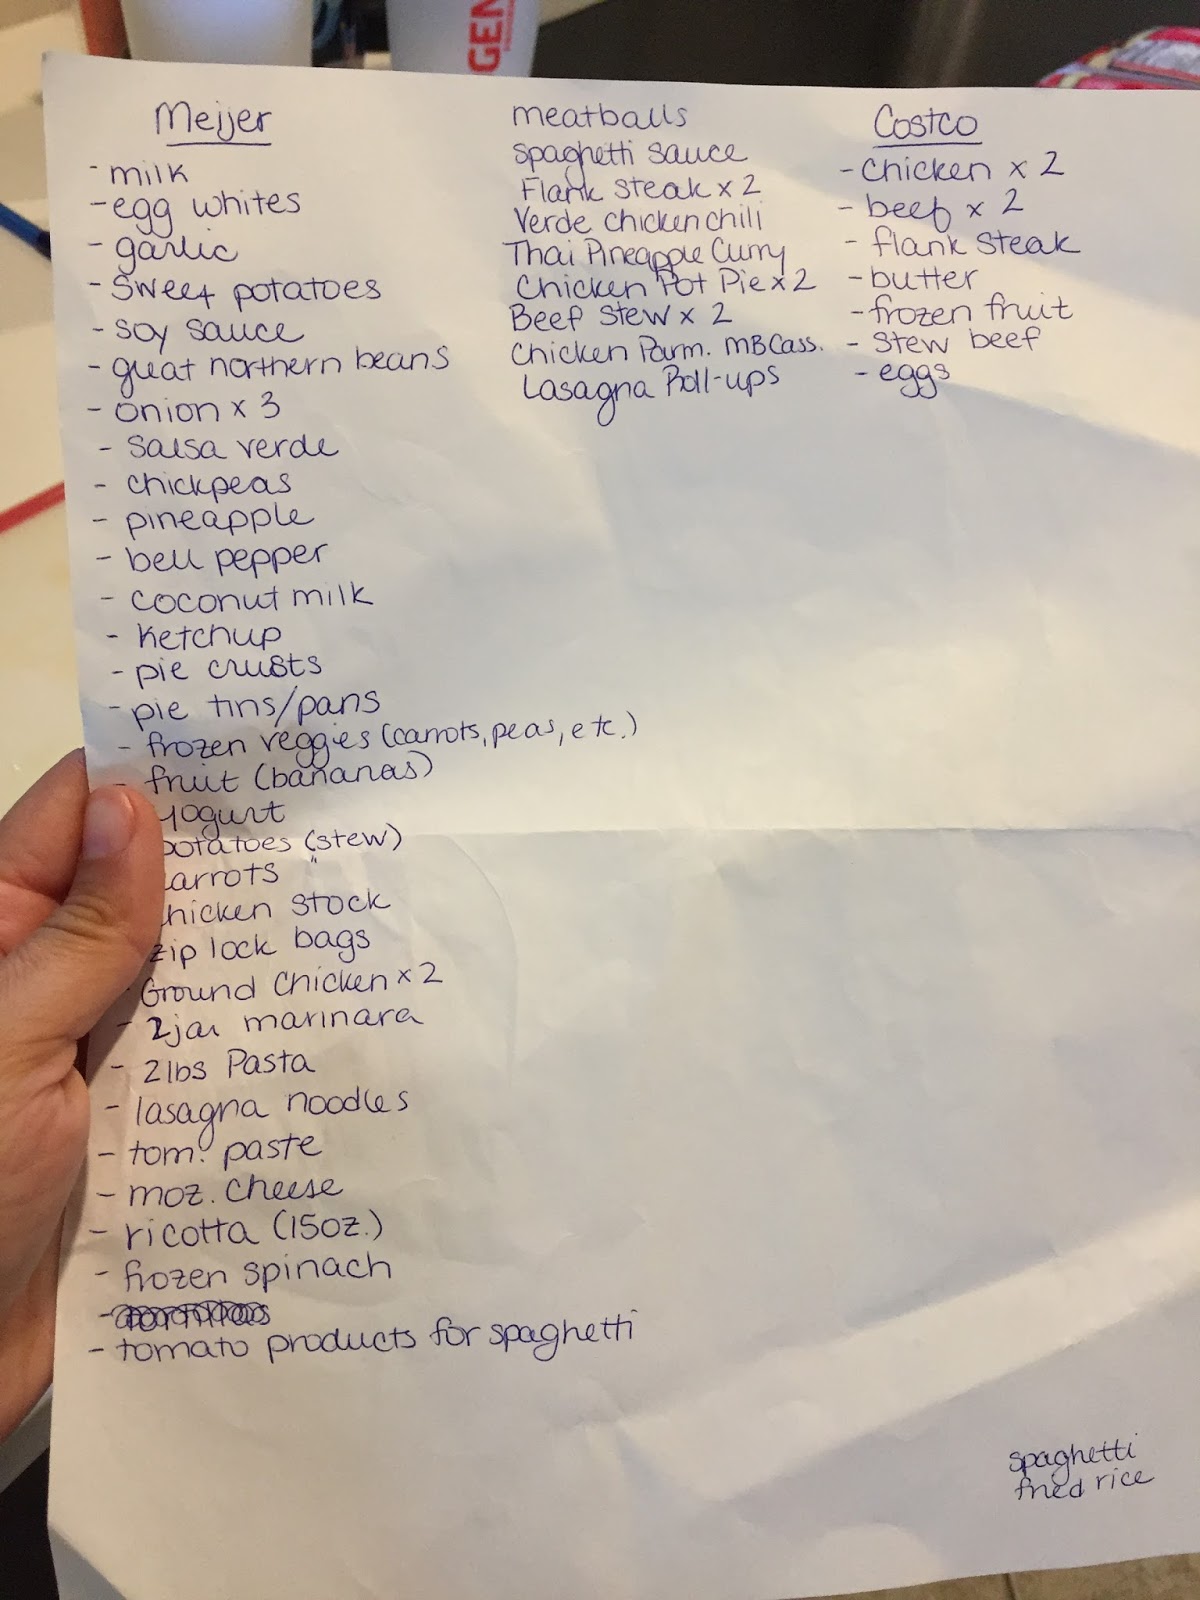 GEN
Meijer
- milk
- egg whites
- garlic
- sweet potatoes
- soy sauce
- great northern beans
- onion x 3
- salsa verde
- chickpeas
- pineapple
- bell pepper
- coconut milk
- ketchup
- pie crusts
- pie tins/pans
- frozen veggies (carrots, peas, etc.)
- fruit (bananas)
yogurt
potatoes (stew)
carrots "
chicken stock
zip lock bags
Ground Chicken x 2
- 2 jar marinara
- 2 lbs Pasta
- lasagna noodles
- tom. paste
- moz. cheese
- ricotta (15oz.)
- frozen spinach
- tomato products for spaghetti
meatballs
spaghetti sauce
Flank Steak x 2
Verde chicken chili
Thai Pineapple Curry
Chicken Pot Pie x 2
Beef Stew x 2
Chicken Parm. MB Cass.
Lasagna Roll-ups
Costco
- Chicken x 2
- beef x 2
- flank steak
- butter
- frozen fruit
- stew beef
- eggs
spaghetti
fried rice